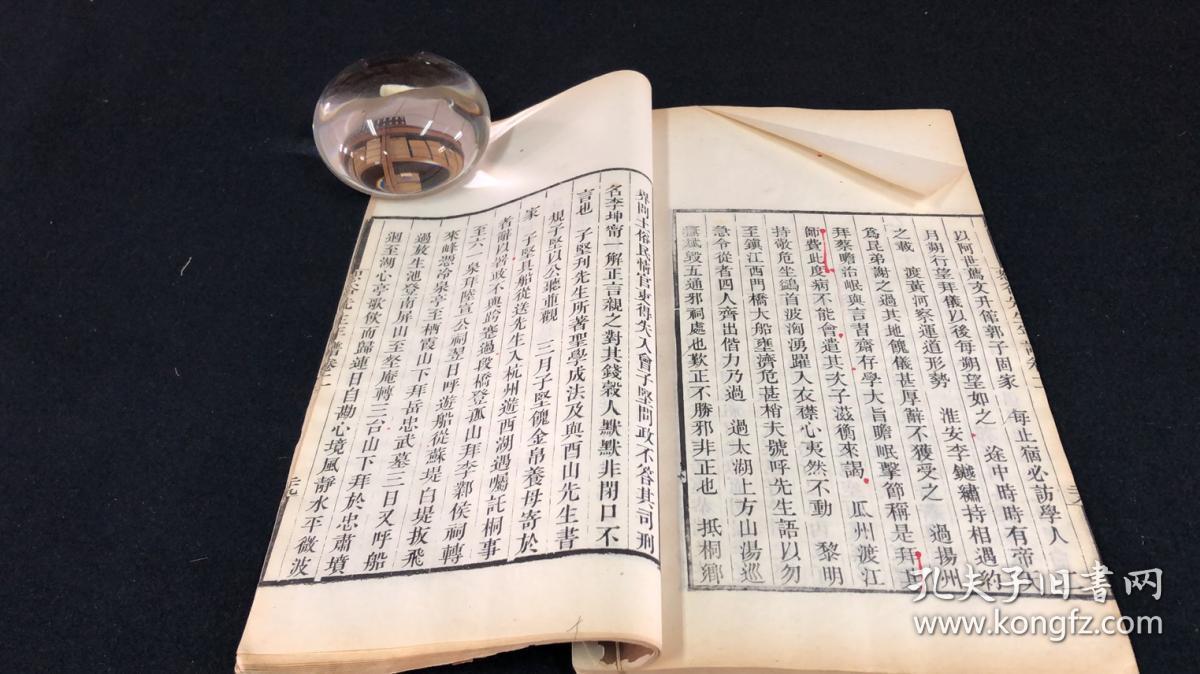 以阿世篤文升節郭子固家　每止宿必訪學人
月朔行望拜儀以後每朔望如之　途中時時有帝天
之載　渡黃河察運道形勢　淮安李鐩繡持相遇約
爲昆弟謝之過其地餽儀甚厚辭不獲受之　過揚州
拜蔡瞻治岷與言習齋存學大旨瞻岷擊節稱是拜上
師費此度病不能會遣其次子滋衡來謁　瓜州渡江
持敬危坐鷁首波洶湧躍入衣襟心夷然不動　黎明
至鎮江西門橋大船壅濟危甚梢夫號呼先生語以勿
急令從者四人齊出偕力乃過　過太湖上方山湯巡
撫斌毀五通邪祠處也歎正不勝邪非正也　抵桐鄉
問土俗民情官吏得失入會子堅問政不答其司刑
名李坤甯一解正言親之對其錢穀人默默非閉口不
言也　子堅刋先生所著聖學成法及與酉山先生書
規子堅以公聽並觀　三月子堅餽金帛養母寄於
家　子堅具船從送先生入杭州遊西湖遇囑託桐事
者辭以督政不與跨蹇過段橋登孤山拜李鄴侯祠轉
至六一泉拜陸宣公祠翌日呼遊船從蘇堤白堤抜飛
來峰憑冷泉亭至栖霞山下拜岳忠武墓三日又呼船
過放生池登南屏山至壑庵轉三台山下拜於忠肅墳
廻至湖心亭歌飲而歸連日自勘心境風靜水平微波
孔夫子旧书网
www.kongfz.com